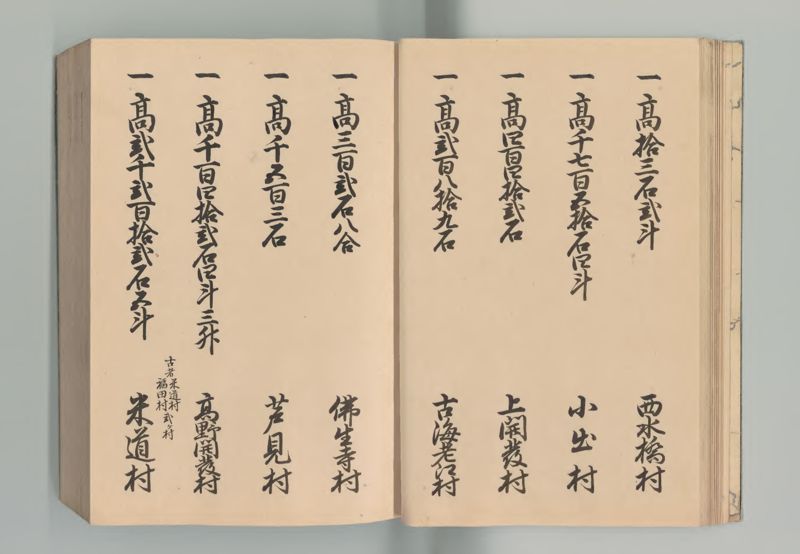 一 高拾三石弐斗 西水橋村
一 高千七百五拾石四斗 小出村
一 高四百四拾弐石 上開發村
一 高弐百八拾九石 古海老江村
一 高三百弐石八合 佛生寺村
一 高千五百三石 芦見村
一 高千百四拾弐石四斗三升 高野開發村
一 高弐千弐百拾弐石五斗 米道村
古者米道村
福田村弐ヶ村